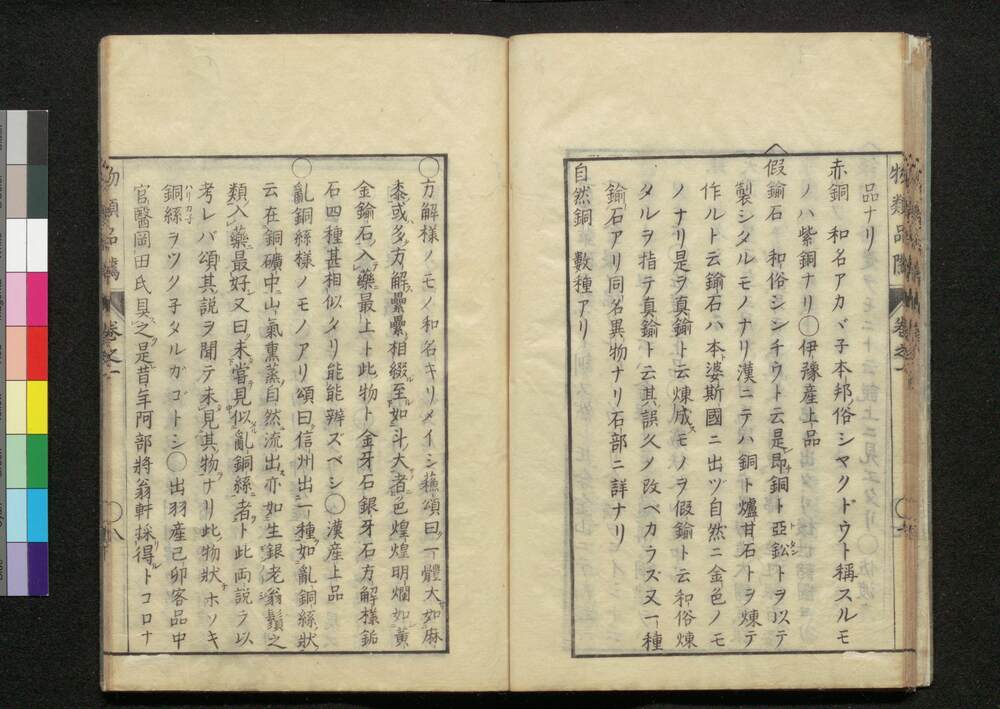 品ナリ
赤銅 和名アカヾ子本邦俗シヤクドウト稱スルモ
ノハ紫銅ナリ〇伊豫産上品
假鍮石 和俗シンチウト云是即銅ト亞鈆トヲ以テ
製シタルモノナリ漢ニテハ銅ト爐甘石トヲ煉テ
作ルト云鍮石ハ本婆斯國ニ出ツ自然ニ金色ノモ
ノナリ是ヲ真鍮ト云煉成スモノヲ假鍮ト云和俗煉
タルヲ指テ真鍮ト云其誤久ノ改ベカラズ又一種
鍮石アリ同名異物ナリ石部ニ詳ナリ
自然銅 數種アリ
物類品隲 卷之一
〇方解様ノモノ和名キリメイシ蘓頌曰一體大如麻
黍或多方解纍纍相綴至如斗大者色煌煌明爛如黄
金鍮石入藥最上ト此物ト金牙石銀牙石方解様鉐
石四種甚相似タリ能能辨ズベシ〇漢産上品
〇亂銅絲様ノモノアリ頌曰信州出一種如亂銅絲状
云在銅礦中山氣熏蒸自然流出亦如生銀老翁鬚之
類入藥最好又曰未嘗見似亂銅絲者ト此両説ヲ以
考レバ頌其説ヲ聞テ未見其物ナリ此物狀ホソキ
銅絲ヲツカ子タルガゴトシ〇出羽産己卯客品中
官醫岡田氏具之是昔年阿部將翁軒採得ルトコロナ
卷之一
八